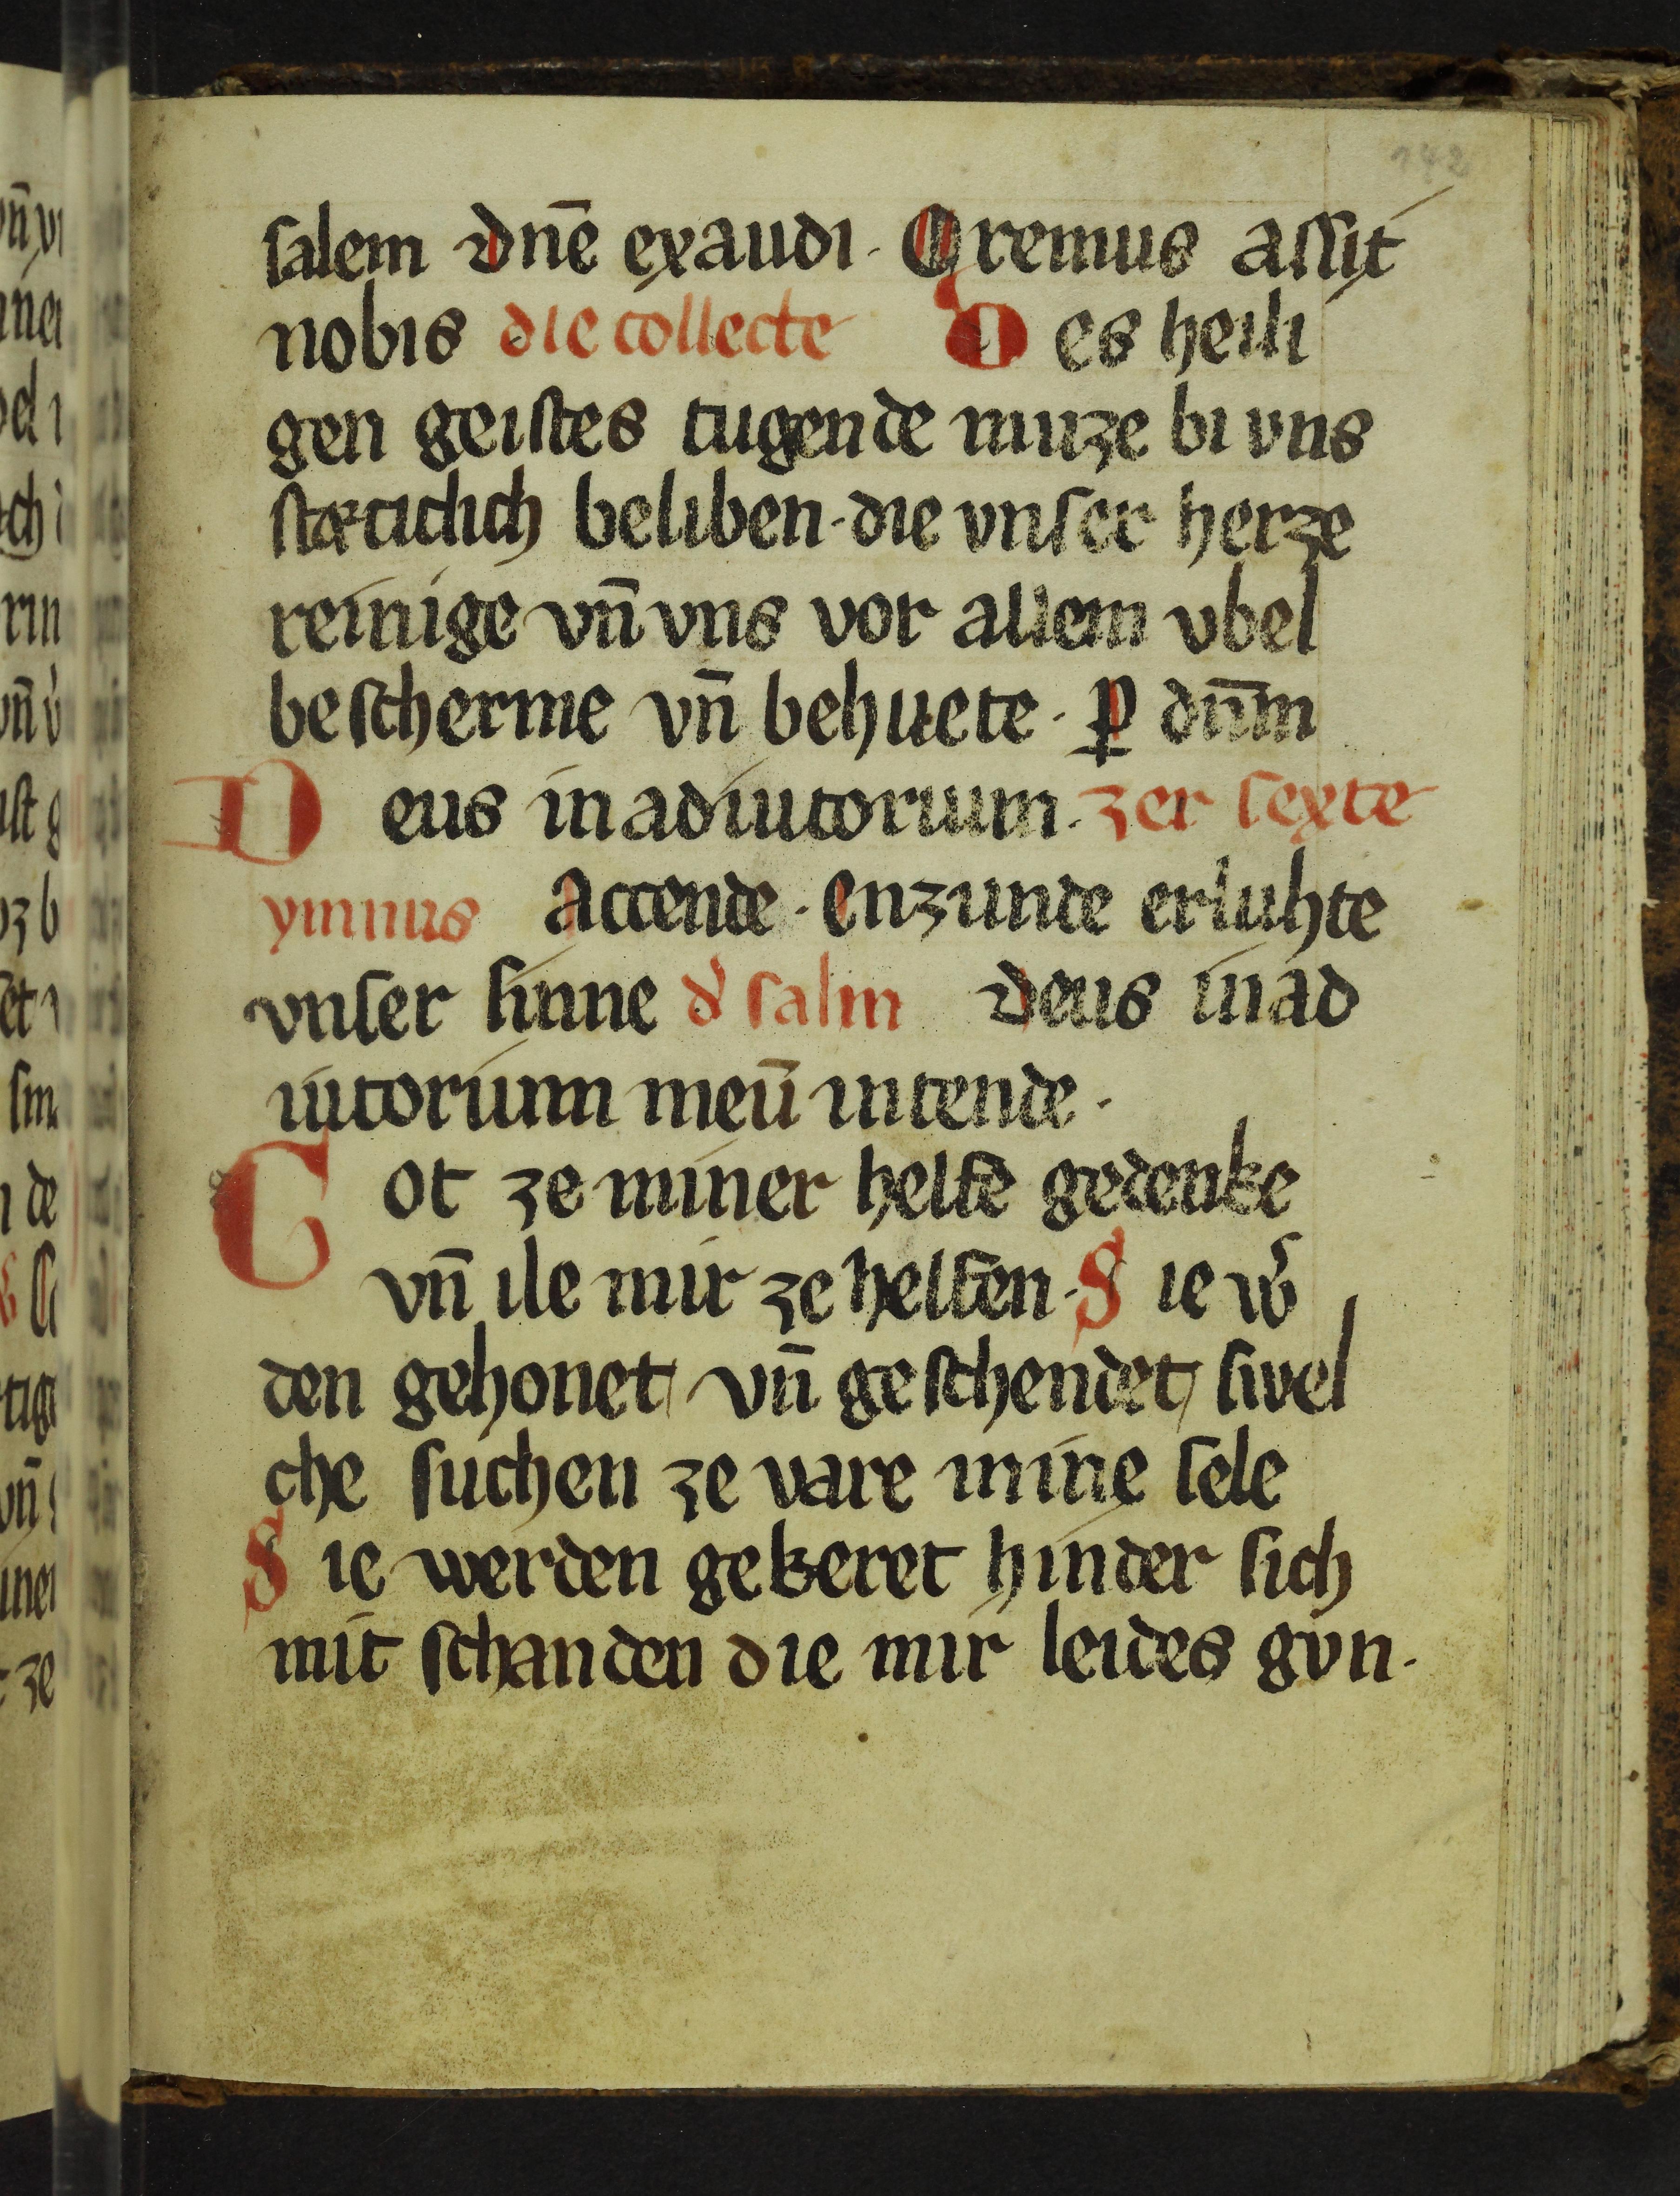 142
salem dnē exaudi · Oremus assit
nobis die collecte Des heili
gen geistes tugende muze bi vns
stæticlich beliben · die vnser herze
reinige vn̄ vns vor allem vbel
bescherme vn̄ behuete · ꝑ dn̄m
Deus in adiutorium · zer sexte
ymnus Accende · Enzunde erluhte
vnser sinne d̾ salm Deus in ad
iutorium meū intende ·
Got ze miner helfe gedenke
vn̄ ile mir ze helfen · Sie w̾
den gehonet vn̄ geschendet swel
che suchen ze vare mine sele
Sie werden gekeret hinder sich
mit schanden die mir leides gvn ·